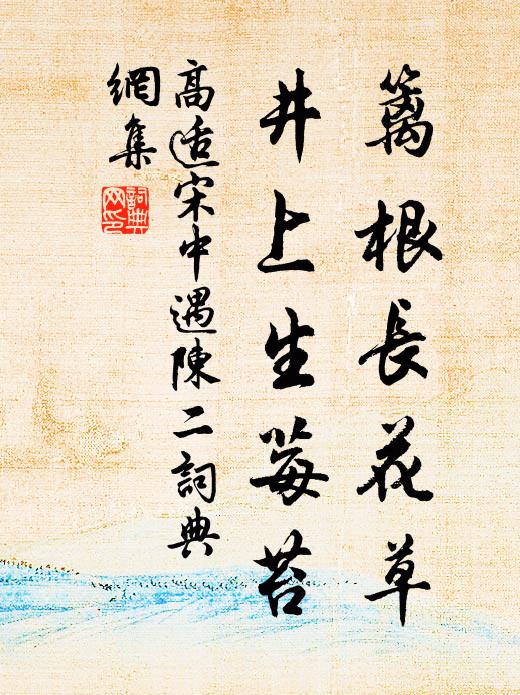 籬根長花草
井上生莓苔
高适宋中遇陳二詞典
網集
詞典网印